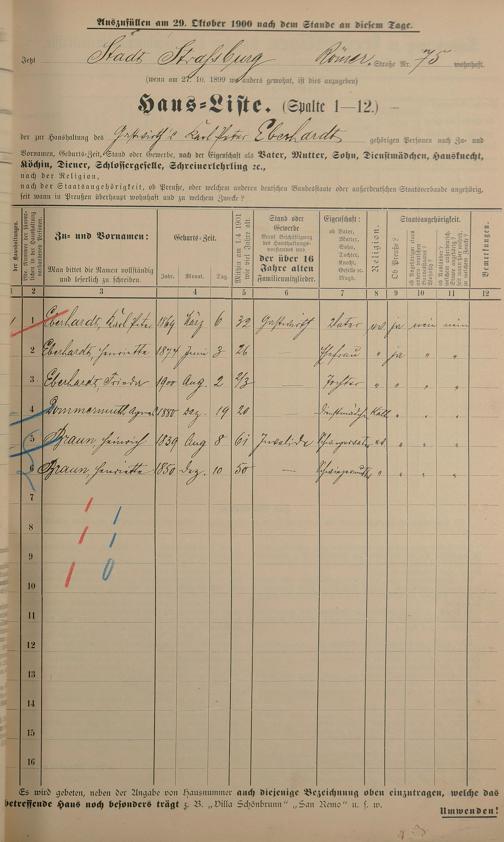 Auszufüllen am 29. Oktober 1900 nach dem Stande an diesem Tage.
Jetzt Stadt Straßburg Römer. Straße Nr. 75 wohnhaft.
(wenn am 27. 10. 1899 wo anders gewohnt, ist dies anzugeben)
Haus-Liste. (Spalte 1—12.)
der zur Haushaltung des Gastwirth's Karl Peter Eberhardt gehörigen Personen nach Zu- und
Vornamen, Geburts-Zeit, Stand oder Gewerbe, nach der Eigenschaft als Vater, Mutter, Sohn, Dienstmädchen, Hausknecht,
Köchin, Diener, Schlossergeselle, Schreinerlehrling ꝛc.,
nach der Religion,
nach der Staatsangehörigkeit, ob Preuße, oder welchem anderen deutschen Bundesstaate oder außerdeutschen Staatsverbande angehörig,
seit wann in Preußen überhaupt wohnhaft und zu welchem Zwecke?
Zu- und Vornamen:
Man bittet die Namen vollständig
und leserlich zu schreiben.
Geburts-Zeit.
Jahr. Monat. Tag.
Mithin am 1./4. 1901
wie viel Jahre alt
Stand oder
Gewerbe
der über 16
Jahre alten
Familienmitglieder.
Eigenschaft:
ob Vater,
Mutter,
Sohn,
Tochter,
Knecht,
Geselle ꝛc.
Magd.
Religion.
Staatsangehörigkeit.
Ob Preuße?
Bemerkungen.
1 2 3 4 5 6 7 8 9 10 11 12
1 1 Eberhardt, Karl Peter 1869 März 6 32 Gastwirth Vater ev ja nein nein
2 Eberhardt, Henriette 1874 Juni 3 26 — Ehefrau " ja " "
3 Eberhardt, Frieda 1900 Aug. 2 2/3 — Tochter " " " "
4 Dommermuth 1880 Dez. 19 20 — Dienstmädchen Kath. " " "
5 Braun, Heinrich 1839 Aug 8 61 Invalide ev " " "
6 Braun, Henriette 1850 Dez. 10 50 — " " " "
7
8
9
10
11
12
13
14
15
16
1 1
1 1
1 0
Es wird gebeten, neben der Angabe von Hausnummer auch diejenige Bezeichnung oben einzutragen, welche das
betreffende Haus noch besonders trägt z. B. „Villa Schönbrunn" „San Remo" u. s. w.
Umwenden!